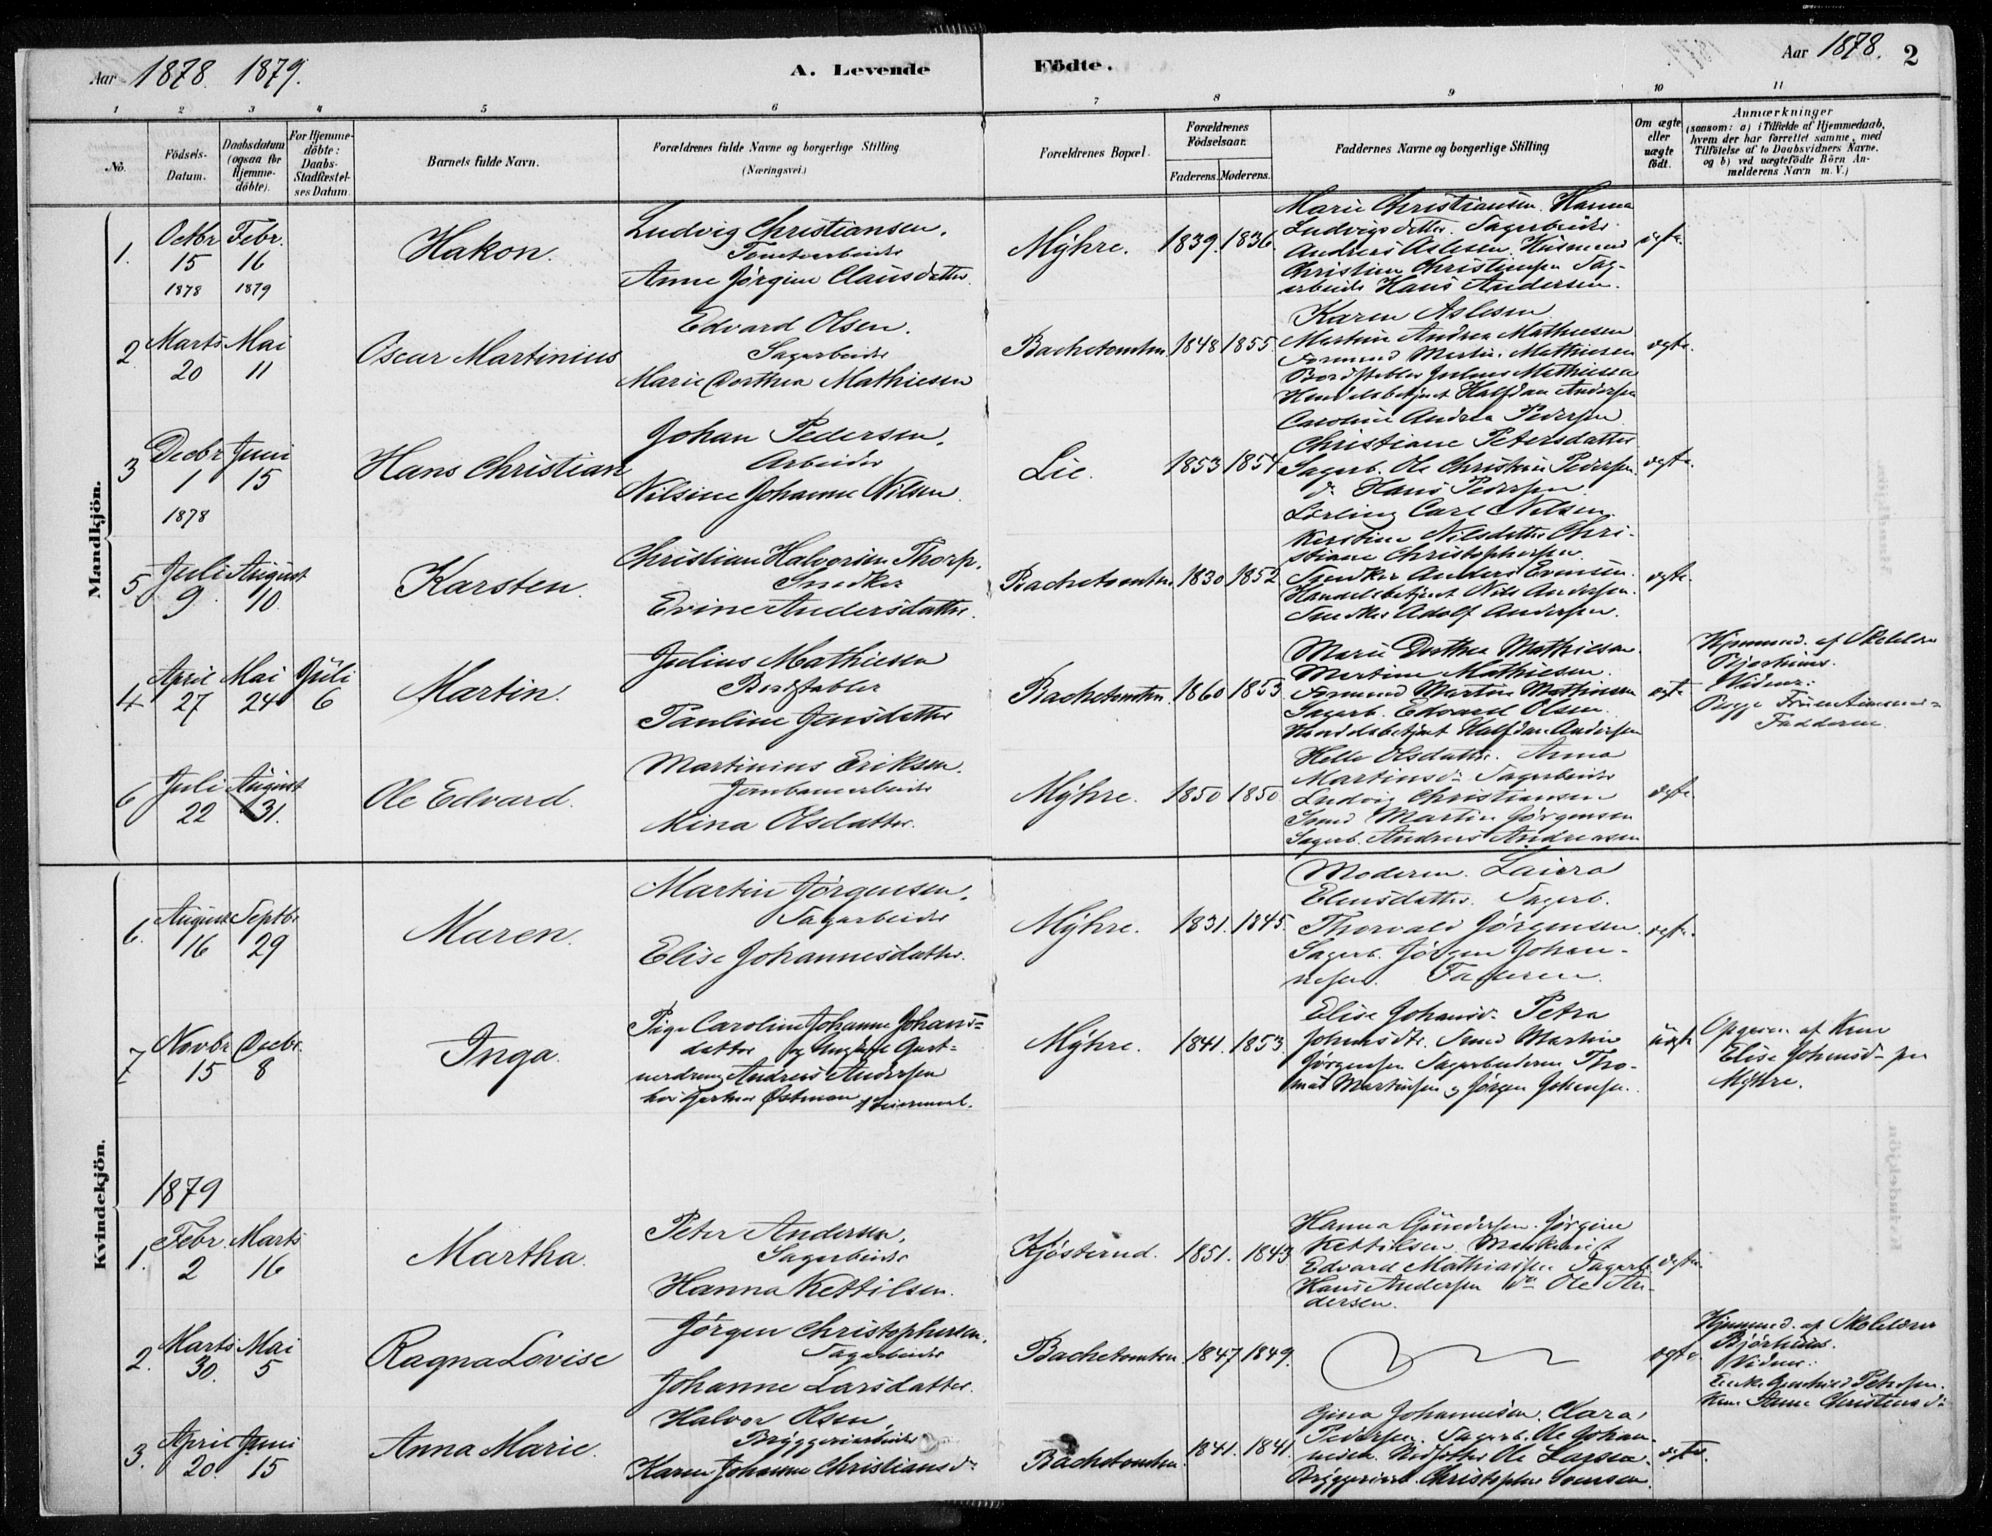 Aar 1878. 1879.
A. Levende
Födte.
Aar 1878.
2
1 2 3 4 5 6 7 8 9 10 11
No.
Födsels-
Datum.
Daabsdatum
(ogsaa för
Hjemme-
döbte).
For Hjemme-
döbte:
Daabs-
Stadfæstel-
ses Datum.
Barnets fulde Navn.
Forældrenes fulde Navne og borgerlige Stilling
(Næringsvei.)
Forældrenes Bopæl.
Forældrenes
Födselsaar.
Faderens. Moderens.
Faddernes Navne og borgerlige Stilling
Om ægte
eller
uægte
födt.
Anmærkninger
(saasom: a) i Tilfælde af Hjemmedaab,
hvem der har forrettet samme, med
Tilföielse af to Daabsvidners Navne.
og b) ved uægtefödte Börn An-
melderens Navn m. V.)
Mandkjön.
1.
Octbr
15
1878
Febr.
16
1879
Hakon.
Ludvig Christiansen.
Tomtearbeider
Anne Jørgine Clausdatter.
Myhre.
1839. 1836.
Marie Christiansen. Hanna
Ludvigsdatter. Sagarbeider
Andreas Aslesen. Husmand
Christian Christiansen Sag-
arbeider Hans Andersen.
ægte.
2
Marts
20
Mai
11
Oscar Martinius
Edvard Olsen.
Sagarbeider
Marie Dorthea Mathiesen
Bachetomten
1848 1855.
Karen Aslesen
Martine Andrea Mathiesen
Formand Martin Mathiesen
Bordstabler Julius Mathiesen
Handelsbetjent Halfdan Andersen
ægte.
3
Decbr
1
1878
Juni
15
Hans Christian
Johan Pedersen.
Arbeider
Nilsine Johanne Nilsen.
Lie.
1853 1854
Caroline Andrea Pedersen
Christiane Petersdatter
Sagarb. Ole Christian Pedersen.
do Hans Pedersen
Lærling Carl Nilsen.
ægte.
5
Juli
9.
August
10
Karsten.
Christian Halvorsen Thorp.
Snedker
Evine Andersdatter.
Bachetomten.
1830 1852.
Kirstine Nilsdatter Chri-
stiane Christophersen.
Snedker Anders Evensen.
Handelsbetjent Nils Andersen.
Snedker Adolf Andersen.
ægte.
4
April
27
Mai
24
Juli
6
Martin.
Julius Mathiesen
Bordstabler
Pauline Jensdatter
Bachetomten.
1860 1853
Marie Dorthea Mathiesen.
Martine Mathiesen.
Formand Martin Mathiesen
Sagarb. Edvard Olsen.
Handelsbetjent Halfdan Andersen
ægte
Hjemmed. af Skolelærer
Bjørhuus.
Vidner:
Faddern.
6
Juli
22
August
31.
Ole Edvard.
Martinius Eriksen.
Jernbanearbeider
Mina Olsdatter.
Myhre.
1850 1850
Helle Olsdatter. Anna
Martinsdr. Sagarbeider
Ludvig Christiansen
Smed Martin Jørgensen
Sagarb. Andreas Andreasen
ægte.
Kvindekjön.
6.
August
16
Septbr
29
Maren.
Martin Jørgensen.
Sagarbeider
Elise Johannesdatter.
Myhre.
1831. 1845.
Moderen. Laura
Elensdatter. Sagarb.
Thorvald Jørgensen.
Sagarb. Jørgen Johan-
nesen. Faderen.
ægte.
7
Novbr
15
Decbr.
8
Inga.
Pige Caroline Johanne Johans-
datter og ungkarl Gart-
nerdreng Andreas Andersen
hos Gartner Østman
Myhre.
1841. 1853.
Elise Johansdr. Petra
Johansdtr. Smed Martin
Jørgensen Sagarbeiderne Tho-
mas Martinsen og Jørgen Johansen.
uægte
Opgiven af Kone
Elise Johansd. paa
Myhre.
1879
1.
Febr.
2
Marts
16
Martha.
Peter Andersen.
Sagarbeider
Hanna Kettilsen.
Kjøsterud.
1851. 1843
Hanna Gundersen. Jørgine
Kettilsen. Maskinist
Edvard Mathiassen Sagarb.
Hans Andersen do Ole An-
dersen.
ægte.
2.
Marts
30.
Mai
5
Ragna Lovise
Jørgen Christophersen.
Sagarbeider
Johanne Larsdatter.
Bachetomten
1847 1849.
ægte.
Hjemmed. af Skolelærer
Bjørhuus.
Vidner:
Enke Petersen.
Kone Christensdr
3.
April
20.
Juni
15
Anna Marie.
Halvor Olsen.
Bryggeriarbeider
Karen Johanne Christiansdr
Bachetomten.
1841. 1841.
Gina Johannesen. Clara
Pedersen. Sagarb. Ole Johan-
nesen. Ole Larsen.
Bryggeriarb. Christopher Svensen.
ægte.